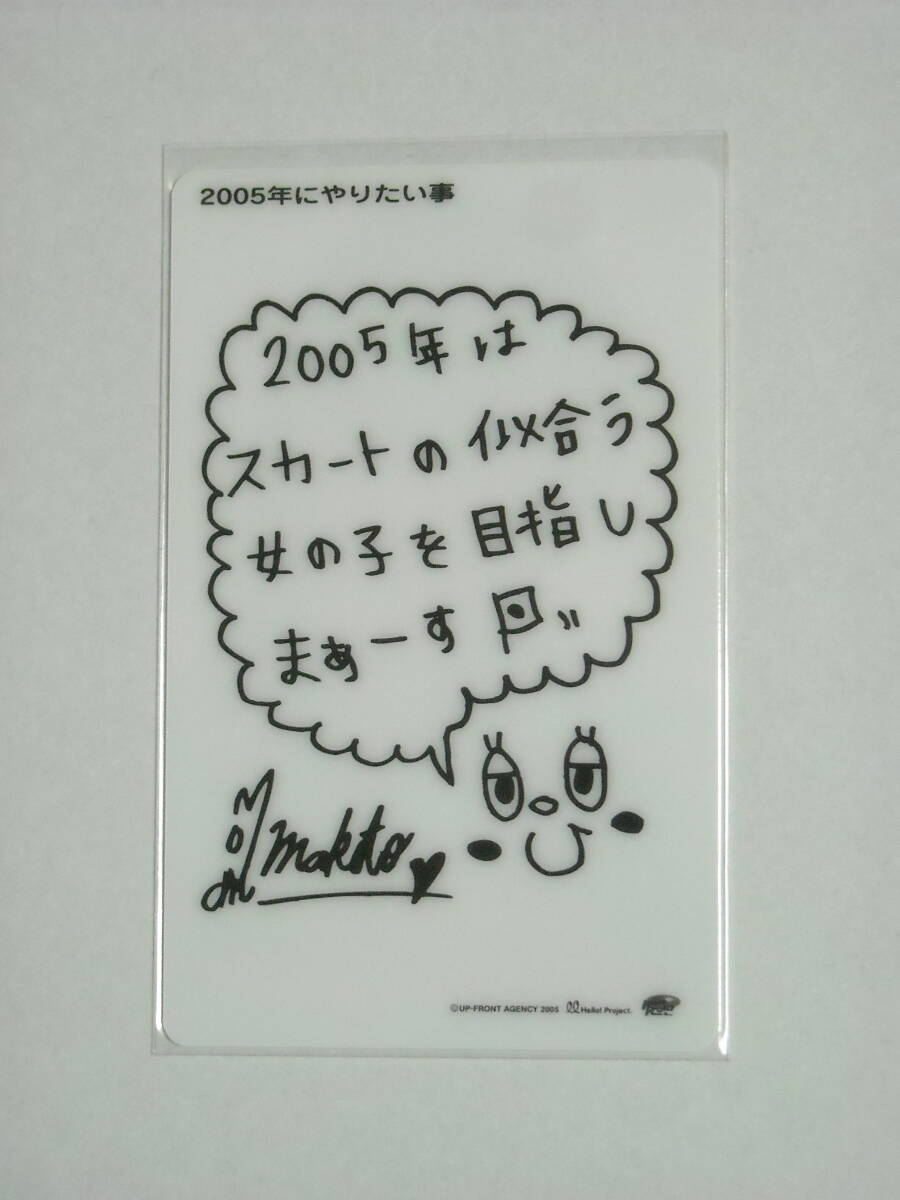 2005年にやりたい事
2005年は
スカートの似合う
女の子を目指し
まぁーす
makoto
©UP-FRONT AGENCY 2005 Hello! Project.